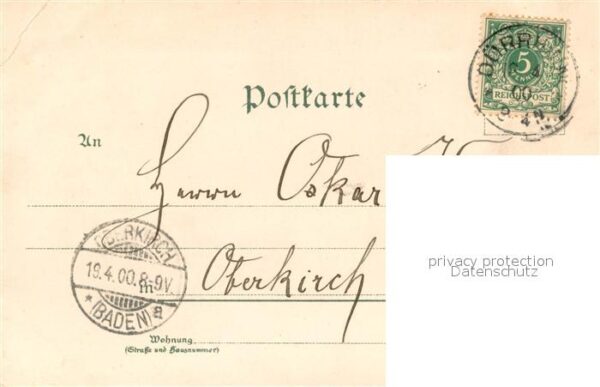 DÜRRH
00
5
REICHSPOST
Postkarte
An
Herrn Oskar
Oberkirch
privacy protection
Datenschutz
OBERKIRCH
19.4.00.8-9V.
* (BADEN) a
Wohnung
(Straße und Hausnummer)